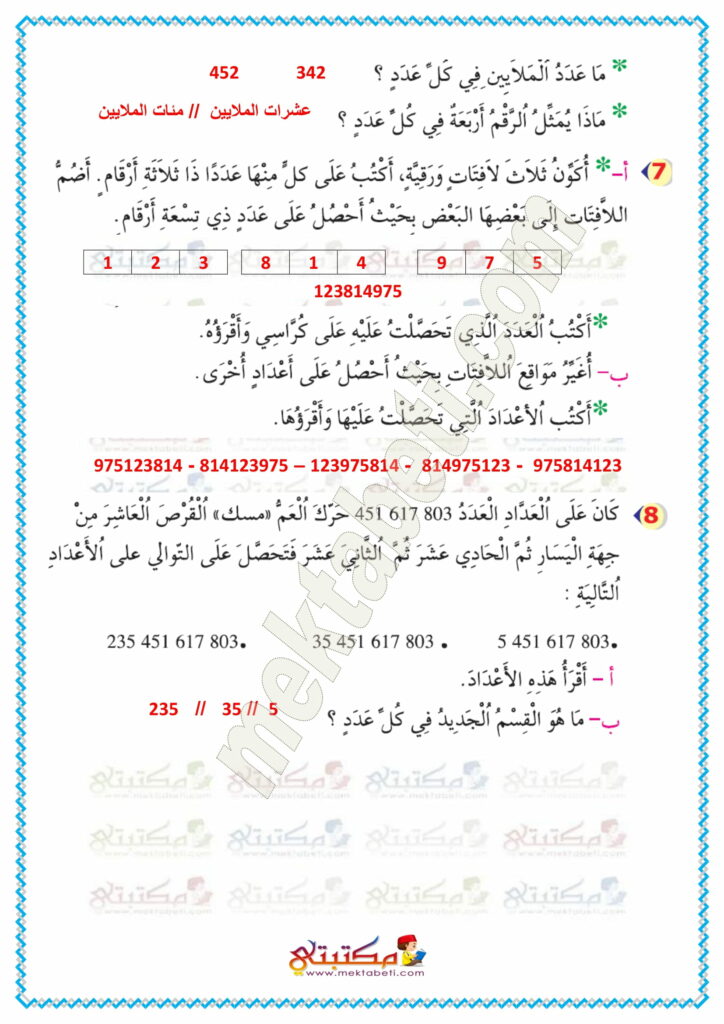 * مَا عَدَدُ اُلْمَلاَيِين فِي كُلِّ عَدَدٍ ؟
342 452
* مَاذَا يُمَثِّلُ اُلرَّقْمُ أَرْبَعَةٌ فِي كُلِّ عَدَدٍ ؟
عشرات الملايين // مئات الملايين
7 أ-* أُكَوِّنُ ثَلاَثَ لاَفِتَاتٍ وَرَقِيَّةٍ، أَكْتُبُ عَلَى كلٍّ مِنْهَا عَدَدًا ذَا ثَلاَثَةِ أَرْقَامٍ. أَضُمُّ
اللاَّفِتَات إِلَى بَعْضِهَا البَعْض بِحَيْثُ أَحْصُلُ عَلَى عَدَدٍ ذِي تِسْعَةِ أَرْقَامٍ.
1 2 3 8 1 4 9 7 5
123814975
*أَكْتُبُ اُلْعَدَدَ اُلَّذِي تَحَصَّلْتُ عَلَيْهِ عَلَى كُرَّاسِي وَأَقْرَؤُهُ.
ب- أُغَيِّرُ مَوَاقِعَ اُللاَّفِتَاتِ بِحَيْثُ أَحْصُلُ عَلَى أَعْدَادٍ أُخْرَى.
*أَكْتُب اُلأَعْدَادَ اُلَّتِي تَحَصَّلْتُ عَلَيْهَا وَأَقْرَؤُهَا.
975123814 - 814123975 – 123975814 - 814975123 - 975814123
8 كَانَ عَلَى اُلْعَدَّادِ اُلعَدَدُ 803 617 451 حَرَّكَ اُلْعَمُّ «مسك» اُلْقُرْصَ اُلْعَاشِرَ مِنْ
جِهَةِ اُلْيَسَارِ ثُمَّ اُلْحَادِي عَشَرَ ثُمَّ اُلثَّانِيَ عَشَرَ فَتَحَصَّلَ عَلَى التّوالي على اُلأَعْدَادِ
اُلتَّالِيَةِ :
•5 451 617 803 •35 451 617 803 •235 451 617 803
أ - أَقْرَأُ هَذِهِ الأَعْدَادَ.
ب- مَا هُوَ اُلْقِسْمُ اُلْجَدِيدُ فِي كُلِّ عَدَدٍ ؟
235 // 35 // 5
mektabeti.com
مكتبتي
www.mektabeti.com